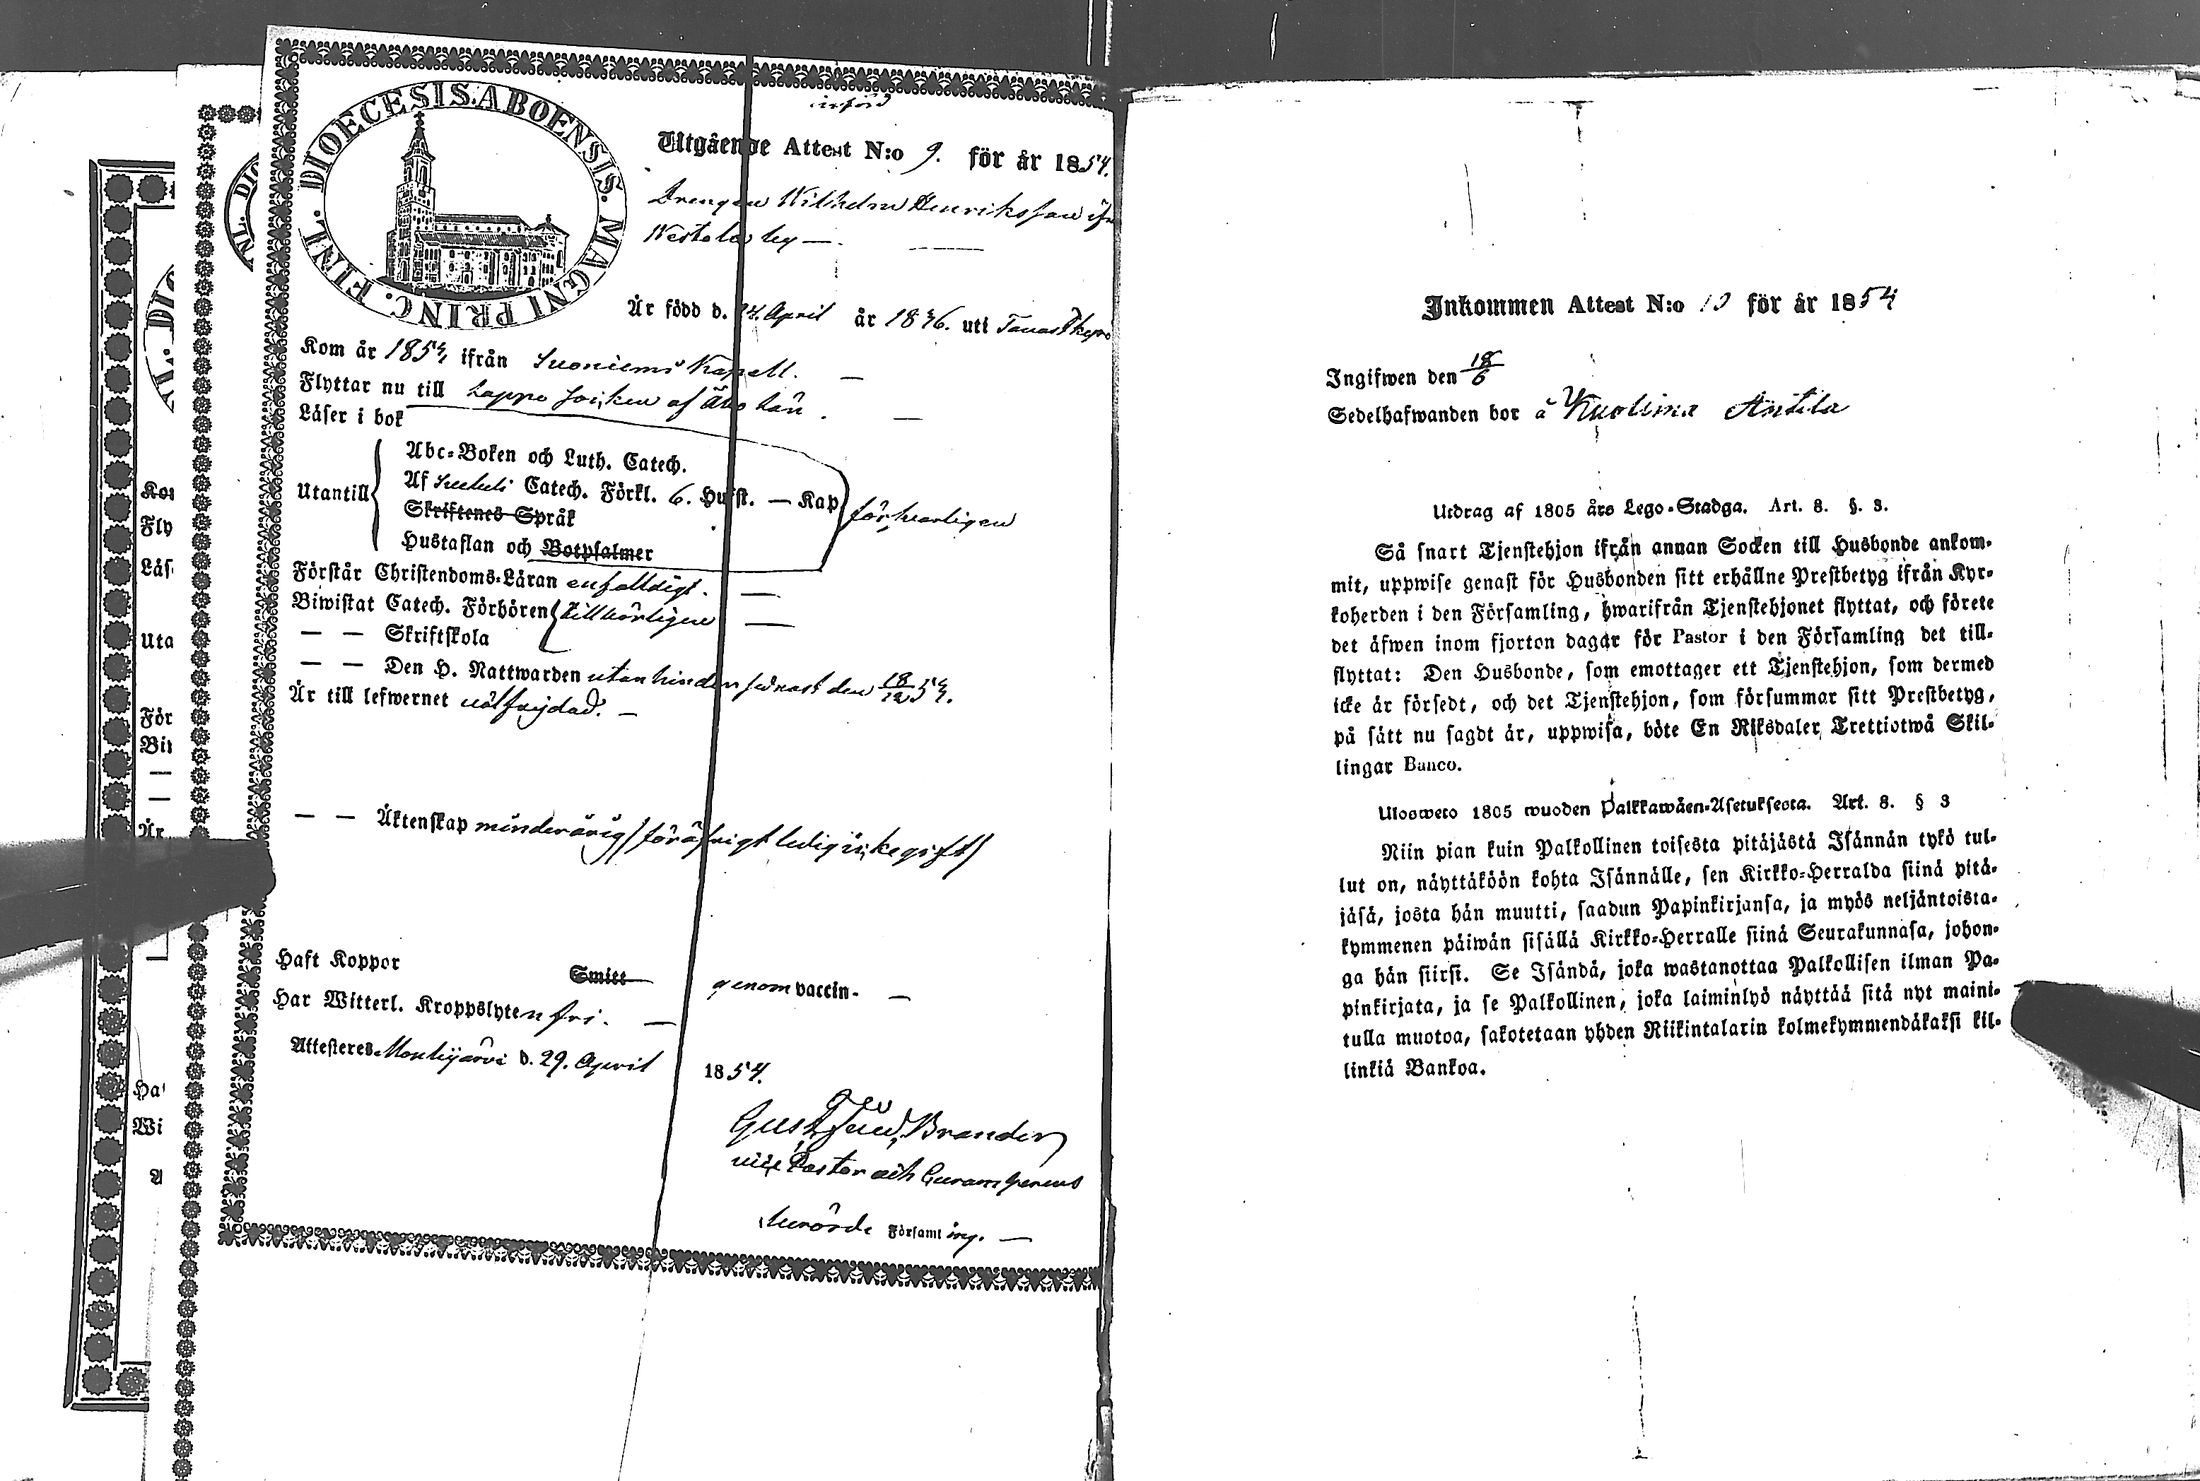 införd
DIOECESIS. ABOENSIS. MAGNI PRINC. FINL.
Utgående Attest N:o 9. för år 1854.
Drengen Wilhelm Henriksson ifrn
Westola by —.
Är född d. 24. April år 1836. uti Tavastkyro
Kom år 1854 ifrån Suoniemi Kapell. —
Flyttar nu till Lappo Socken af Åbo Län. —
Läser i bok
Utantill
Abc-Boken och Luth. Catech.
Af Svebeli Catech. Förkl. 6. Hufst. — Kap
Skriftenes Språk
Hustaflan och Botpsalmer
försvarligen
Förstår Christendoms-Läran enfalldigt. —
Biwistat Catech. Förhören tillbörligen —
— — Skriftskola
— — Den H. Nattwarden utan hinder sednast den 18/12 54.
Är till lefwernet välfrejdad. —
— — Äktenskap minderårig
Haft Koppor Smitt genom vaccin. —
Har Witterl. Kroppslyten fri. —
Attesteras Mouhijärvi d. 29. April 1854.
Gust. Brander
vice Pastor och Curam gerens
Församling. —
NL. DIO
L. DIO
Kom
Fly
Läs
Uta
För
Biw
—
—
Är
Ha
Wi
A
Inkommen Attest N:o 10 för år 1854
Ingifwen den 18/6
Sedelhafwanden bor å Kuolima Anttila
Utdrag af 1805 års Lego-Stadga. Art. 8. §. 3.
Så snart Tjenstehjon ifrån annan Socken till Husbonde ankom-
mit, uppwise genast för Husbonden sitt erhållne Prestbetyg ifrån Kyr-
koherden i den Församling, hwarifrån Tjenstehjonet flyttat, och förete
det äfwen inom fjorton dagar för Pastor i den Församling det till-
flyttat: Den Husbonde, som emottager ett Tjenstehjon, som dermed
icke är försedt, och det Tjenstehjon, som försummar sitt Prestbetyg,
på sätt nu sagdt är, uppwisa, böte En Riksdaler Trettiotwå Skil-
lingar Banco.
Ulosweto 1805 wuoden Palkkawäen-Asetuksesta. Art. 8. § 3
Niin pian kuin Palkollinen toisesta pitäjästä Isännän tykö tul-
lut on, näyttäköön kohta Isännälle, sen Kirkko-Herralda siinä pitä-
jäsä, josta hän muutti, saadun Papinkirjansa, ja myös neljäntoista-
kymmenen päiwän sisällä Kirkko-Herralle siinä Seurakunnasa, johon-
ga hän siirsi. Se Isändä, joka wastanottaa Palkollisen ilman Pa-
pinkirjata, ja se Palkollinen, joka laiminlyö näyttää sitä nyt maini-
tulla muotoa, sakotetaan yhden Riikintalarin kolmekymmendäkaksi kil-
linkiä Bankoa.